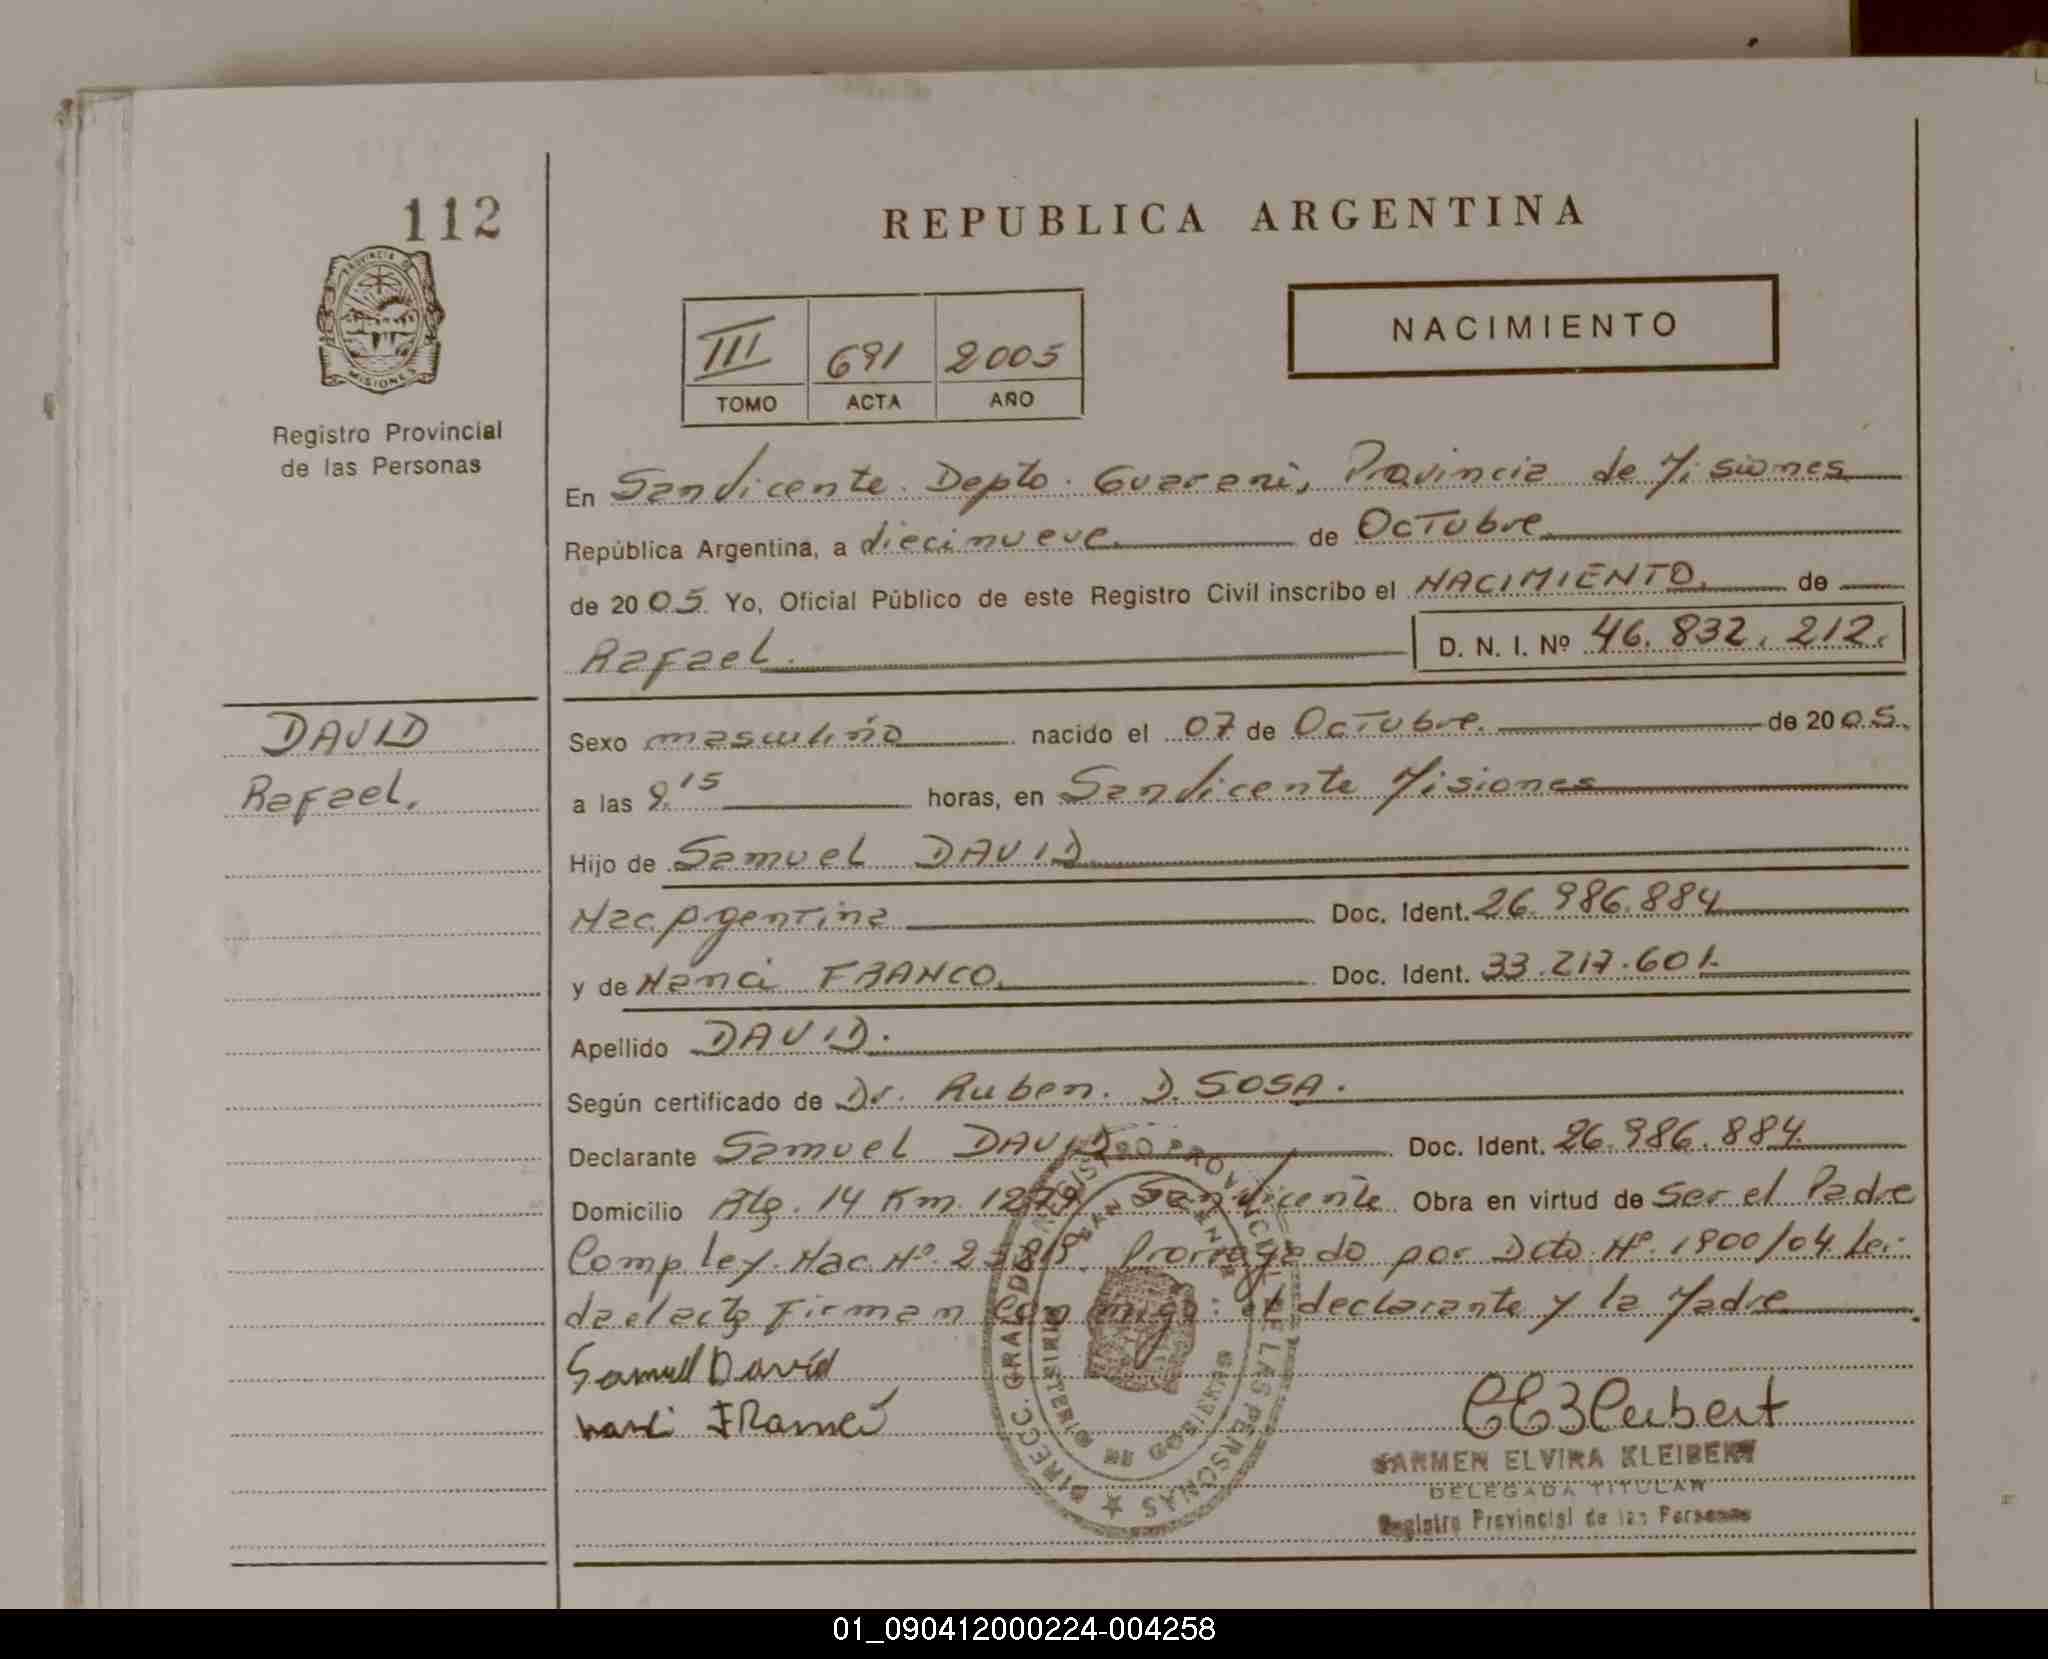 112
REPUBLICA ARGENTINA
PROVINCIA DE
MISIONES
Registro Provincial
de las Personas
III 691 2005
TOMO ACTA AÑO
NACIMIENTO
En San Vicente. Depto. Guarani, Provincia de Misiones
República Argentina, a diecinueve. de Octubre
de 2005. Yo, Oficial Público de este Registro Civil inscribo el NACIMIENTO. de
Rafael. D. N. I. Nº 46.832.212.
DAVID
Rafael.
Sexo masculino nacido el 07 de Octubre. de 2005.
a las 9.15 horas, en San Vicente Misiones
Hijo de Samuel DAVID
Nac. Argentina Doc. Ident. 26.986.884
y de Nanci FRANCO. Doc. Ident. 33.217.601.
Apellido DAVID.
Según certificado de Dr. Ruben. D. SOSA.
Declarante Samuel DAVID Doc. Ident. 26.986.884.
Domicilio 14 Km. San Vicente. Obra en virtud de Ser el Padre
Comp. Ley. Nac. Nº. Prorrogado por Dcto. Nº. 1900/04. Lei-
da el acta Firman Conmigo: el declarante y la Madre
Samuel David
CEKleibert
CARMEN ELVIRA KLEIBERT
DELEGADA TITULAR
Registro Provincial de las Personas
DIRECC. GRAL. DE REGISTRO PROVINCIAL DE LAS PERSONAS
SAN VICENTE
MINISTERIO DE GOBIERNO
01_090412000224-004258